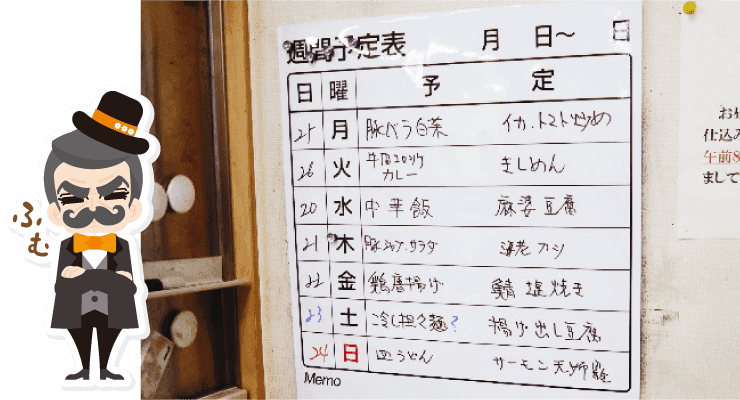 週間予定表 月 日~ 日
日 曜 予 定
25 月 豚バラ白菜 イカ・トマト炒め
26 火 牛肉コロッケ カレー きしめん
20 水 中華飯 麻婆豆腐
21 木 豚シャブサラダ 海老カツ
22 金 鶏唐揚げ 鯖塩焼き
23 土 冷し担々麺? 揚げ出し豆腐
24 日 皿うどん サーモン天
Memo
ふむ
お
仕込み
午前8
まして